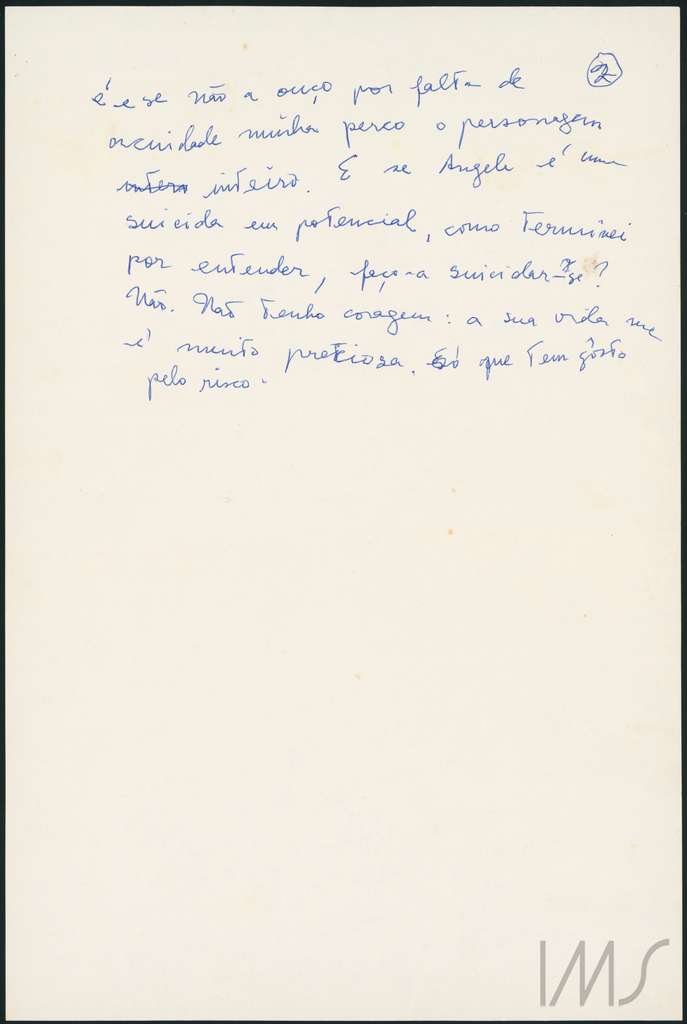 2
é e se não a ouço por falta de
acuidade minha perco o personagem
inteiro inteiro. E se Angela é uma
suicida em potencial, como terminei
por entender, faço-a suicidar-se?
Não. Não tenho coragem: a sua vida me
é muito preciosa. Só que tem gôsto
pelo risco.
IMS